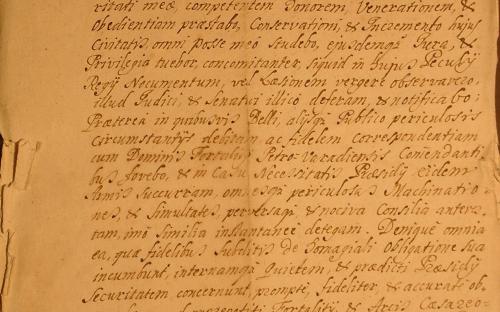 ritati meæ, competentem Honorem, Venerationem, &
Obedientiam præstabo, Conservationi, & Incremento hujus
Civitatis, omni posse meo Studebo, ejusdemq; Jura, &
Privilegia tuebor, concomitanter, siquid in hujus Peculij
Regij Nocumentum, vel Læsionem vergere observavero,
illud Judici, & Senatui illico deferam, & notificabo;
Præterea in quibusvis Belli, alijsq; Publico periculosis
Circumstantijs debitam ac fidelem correspondentiam
cum Dominis Fortalitij Petro-Varadiensis Commendanti
bus fovebo, & in Casu Necessitatis Præsidij eidem
Armis succurram, omnesq; periculosas Machinatio
nes, & Simultates, perversaq; & nociva Consilia antev
tam, imo similia instantanee detegam. Denique omnia
ea, quæ fidelibus Subditis de Homagiali Obligatione sua
incumbunt, internamq; Quietem, & prædicti Præsidij
Securitatem concernunt, prompte, fideliter, & accurate ob
Fortalitij, & Arcis Cæsareo-